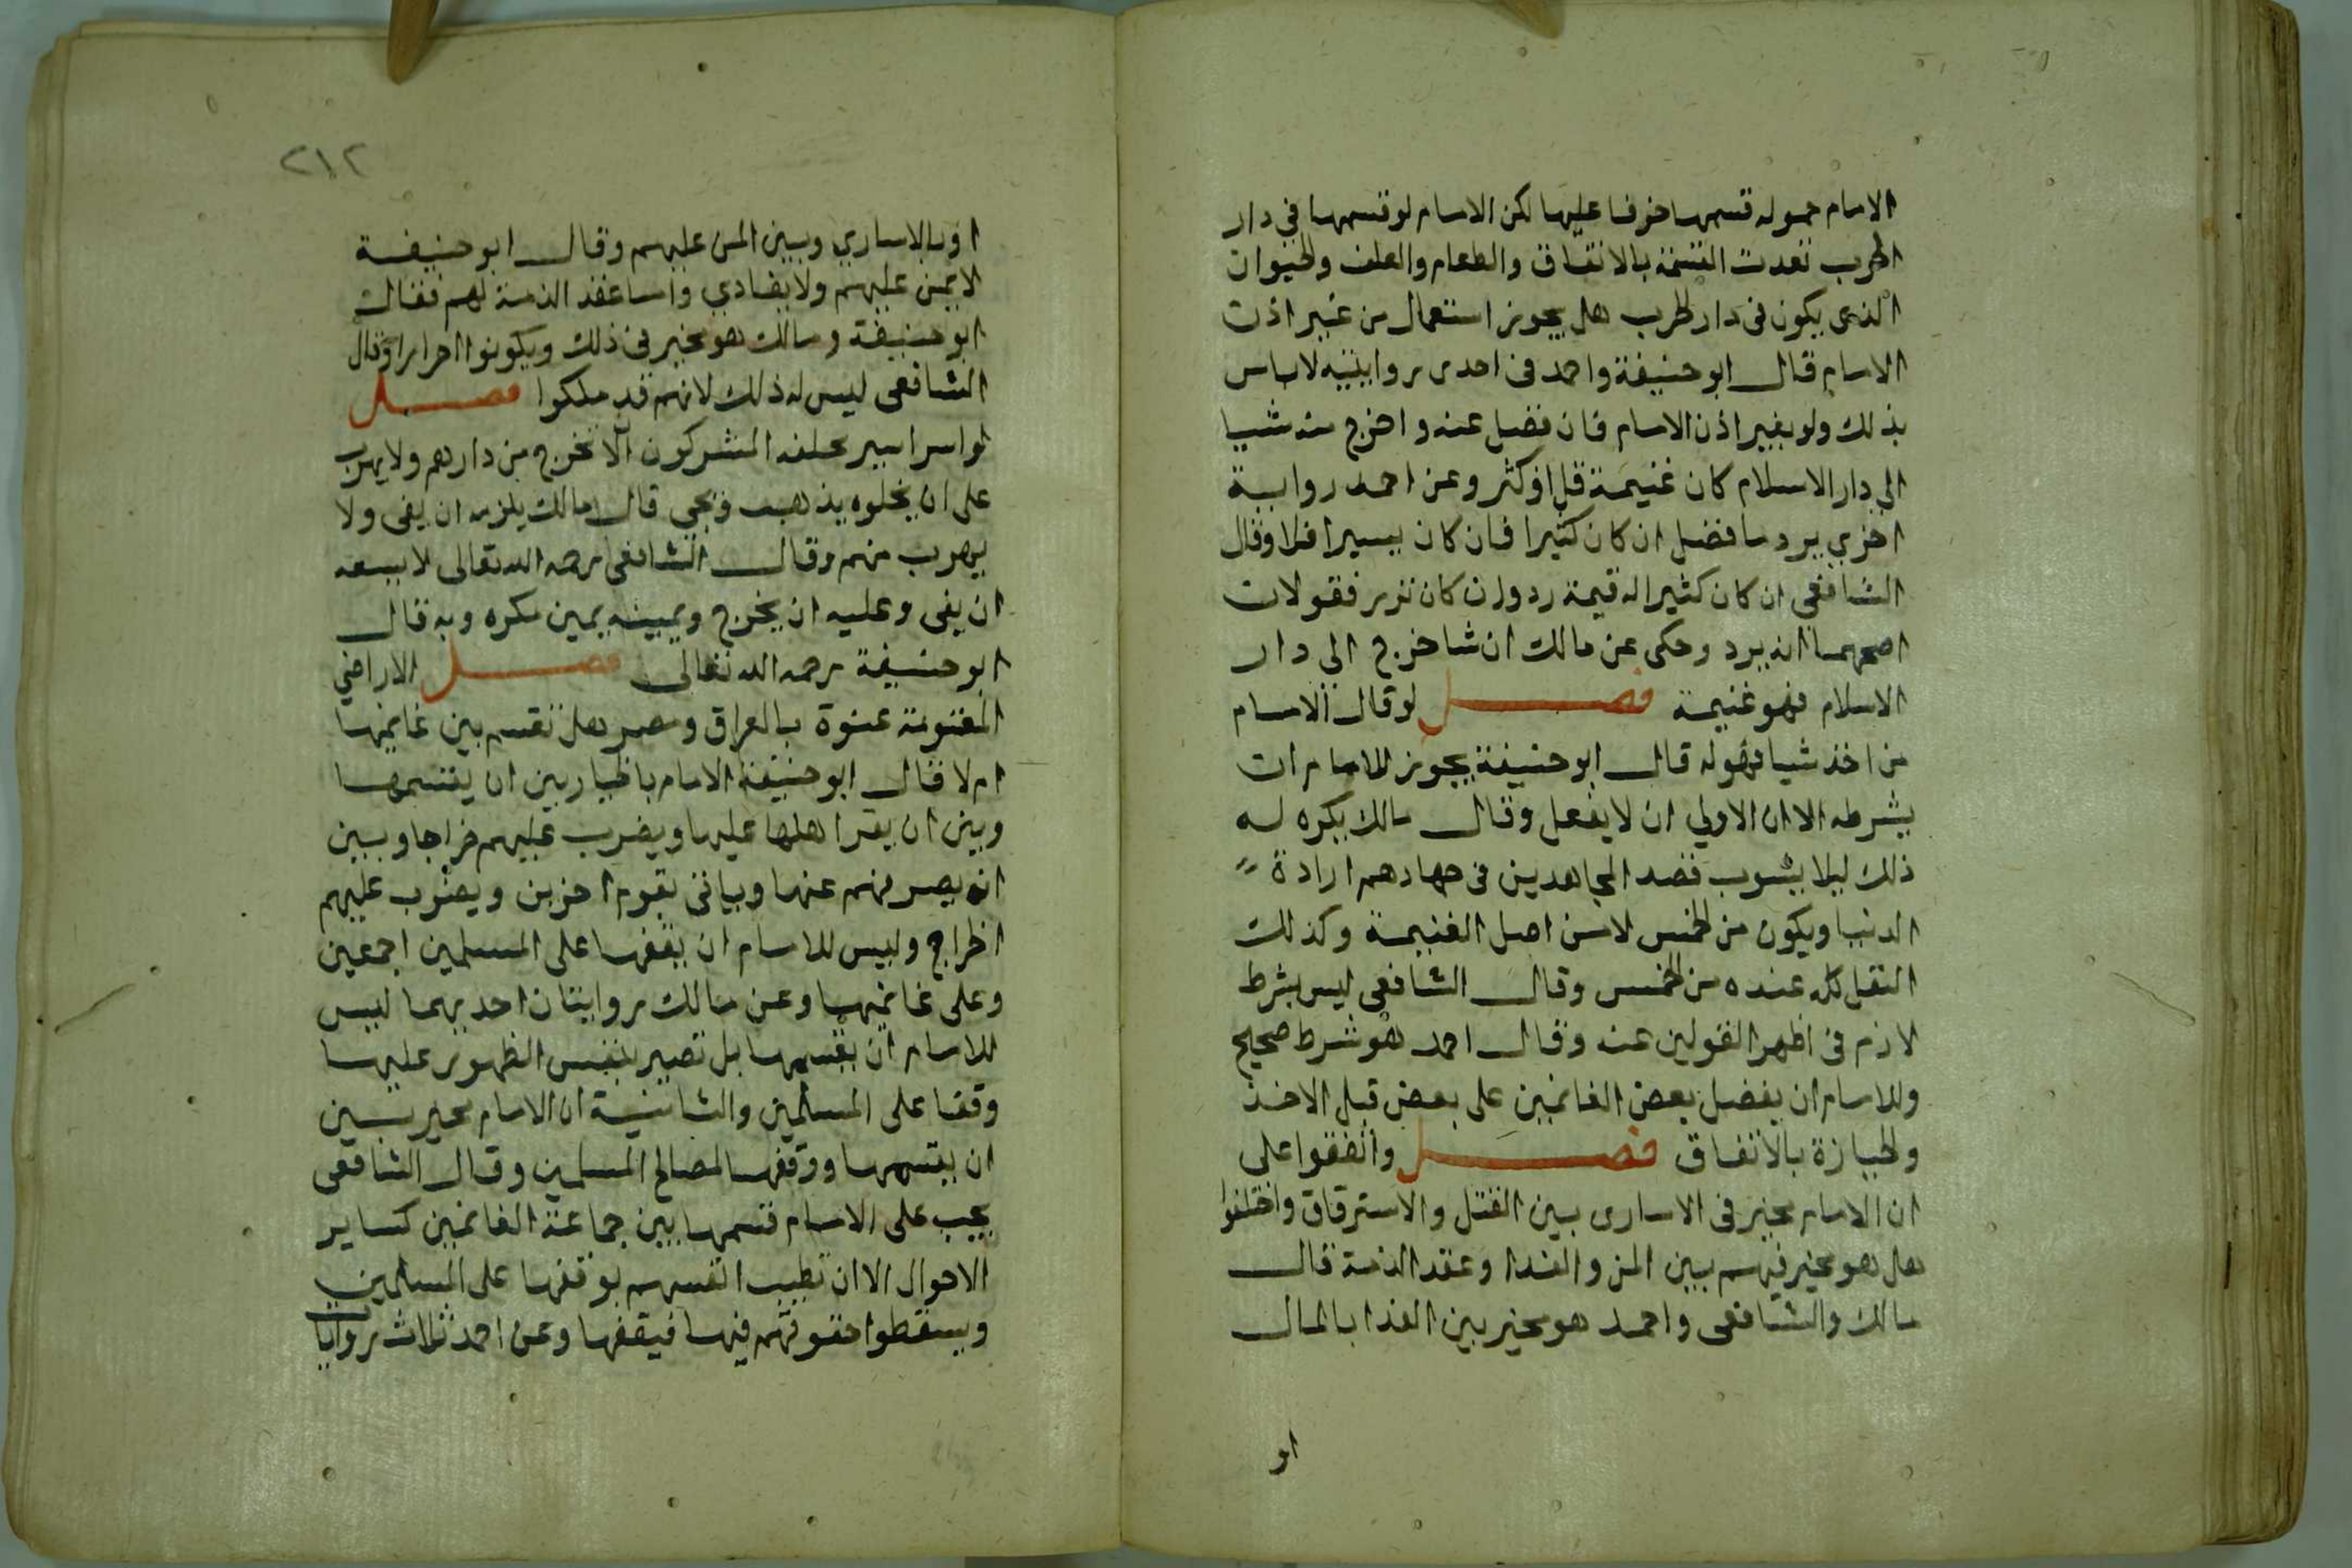 الامام حموله قسمها خوفا عليها لكن الامام لو قسمها في دار
الحرب نفدت القسمة بالاتفاق والطعام والعلف والحيوان
الذى يكون فى دار الحرب هل يجوز استعمال من غير اذن
الامام قال ابو حنيفة واحمد فى احدى روايتيه لاباس
بذلك ولو بغير اذن الامام فان فضل عنه واخرج منه شيا
الى دار الاسلام كان غنيمة قل او كثر وعن احمد رواية
اخري يرد ما فضل ان كان كثيرا فان كان يسيرا فلا وقال
الشافعي ان كان كثيرا له قيمة رد وان كان نزر فقولان
اصحهما انه يرد وحكى عن مالك ان شا خرج الى دار
الاسلام فهو غنيمة فصل لو قال الامام
من اخذ شيا فهو له قال ابو حنيفة يجوز للامام ان
يشرطه الا ان الاولي ان لا يفعل وقال مالك يكره له
ذلك ليلا يشوب قصد المجاهدين فى جهادهم ارادة
الدنيا ويكون من الخمس لا من اصل الغنيمة وكذلك
النفل كله عنده من الخمس وقال الشافعي ليس بشرط
لازم فى اظهر القولين عنه وقال احمد هو شرط صحيح
وللامام ان يفضل بعض الغانمين على بعض قبل الاخذ
والحيازة بالاتفاق فصل واتفقوا على
ان الامام مخير فى الاسارى بين القتل والاسترقاق واختلفوا
هل هو مخير فيهم بين المن والفدا وعقد الذمة قال
مالك والشافعى واحمد هو مخير بين الفدا بالمال
او
٢١٢
او بالاساري وبين المن عليهم وقال ابو حنيفة
لا يمن عليهم ولا يفادي واما عقد الذمة لهم فقال
ابو حنيفة ومالك هو مخير فى ذلك ويكونوا احرارا وقال
الشافعى ليس له ذلك لانهم قد ملكوا فصل
لو اسر اسير فحلفه المشركون الا يخرج من دارهم ولا يهرب
على ان يخلوه يذهب ويجي قال مالك يلزمه ان يفى ولا
يهرب منهم وقال الشافعى رحمه الله تعالى لا يسعه
ان يفى وعليه ان يخرج ويمينه يمين مكره وبه قال
ابو حنيفة رحمه الله تعالى فصل الاراضي
المغنومة عنوة بالعراق ومصر هل تقسم بين غانميها
ام لا فقال ابو حنيفة الامام بالخيار بين ان يقسمها
وبين ان يقر اهلها عليها ويضرب عليهم خراجا وبين
ان يصرفهم عنها وياتى بقوم اخرين ويضرب عليهم
الخراج وليس للامام ان يقفها على المسلمين اجمعين
وعلى غانميها وعن مالك روايتان احديهما ليس
للامام ان يقسمها بل تصير بنفس الظهور عليها
وقفا على المسلمين والثانية ان الامام مخير بين
ان يقسمها ووقفها لمصالح المسلمين وقال الشافعى
يجب على الامام قسمها بين جماعة الغانمين كساير
الاموال الا ان تطيب انفسهم بوقفها على المسلمين
ويسقطوا حقوقهم فيها فيقفها وعن احمد ثلاث روايات